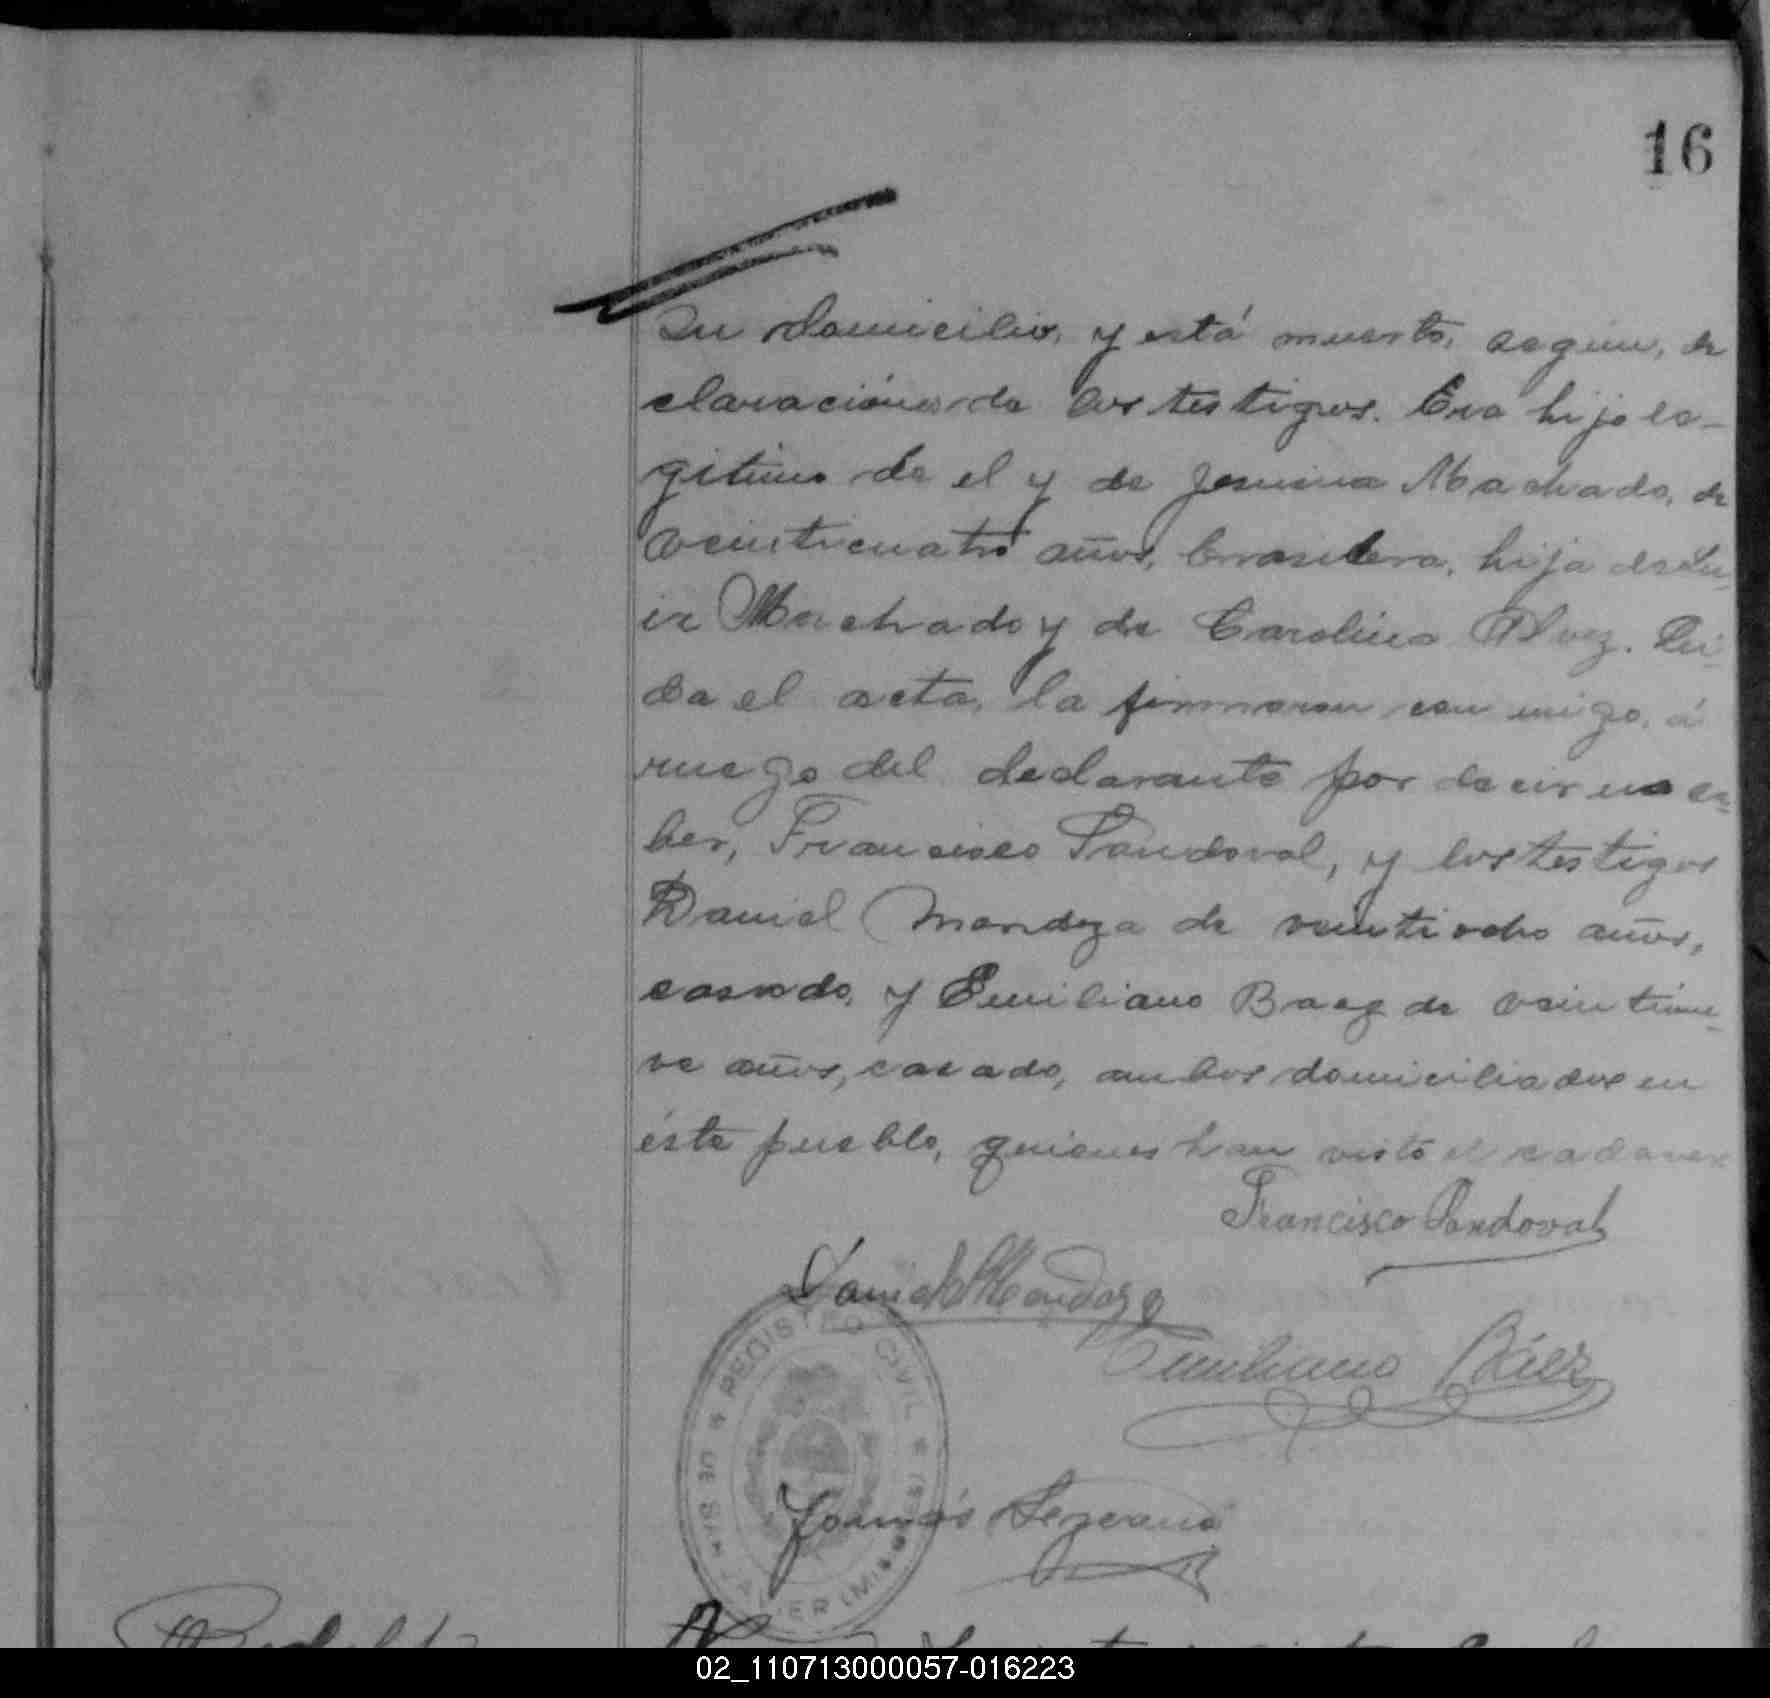 16
su domicilio, y está muerto, segun, de
claraciónes de los testigos. Era hijo le-
gitimo de el y de Machado, de
veinticuatro años, brasilera, hija de Lu-
iz Machado y de Carolina Alvez. Lei-
da el acta, la firmaron con migo, á
ruego del declarante por decir no sa-
ber, Francisco Sandoval, y los testigos
Daniel Mendoza de veintiocho años,
casado, y Emiliano Baez de veintinue-
ve años, casado, ambos domiciliados en
éste pueblo, quienes han visto el cadaver
Francisco Sandoval
Daniel Mendoza
Emiliano Báez
REGISTRO CIVIL
DE SAN JAVIER (MISIONES)
Tomás
02_110713000057-016223